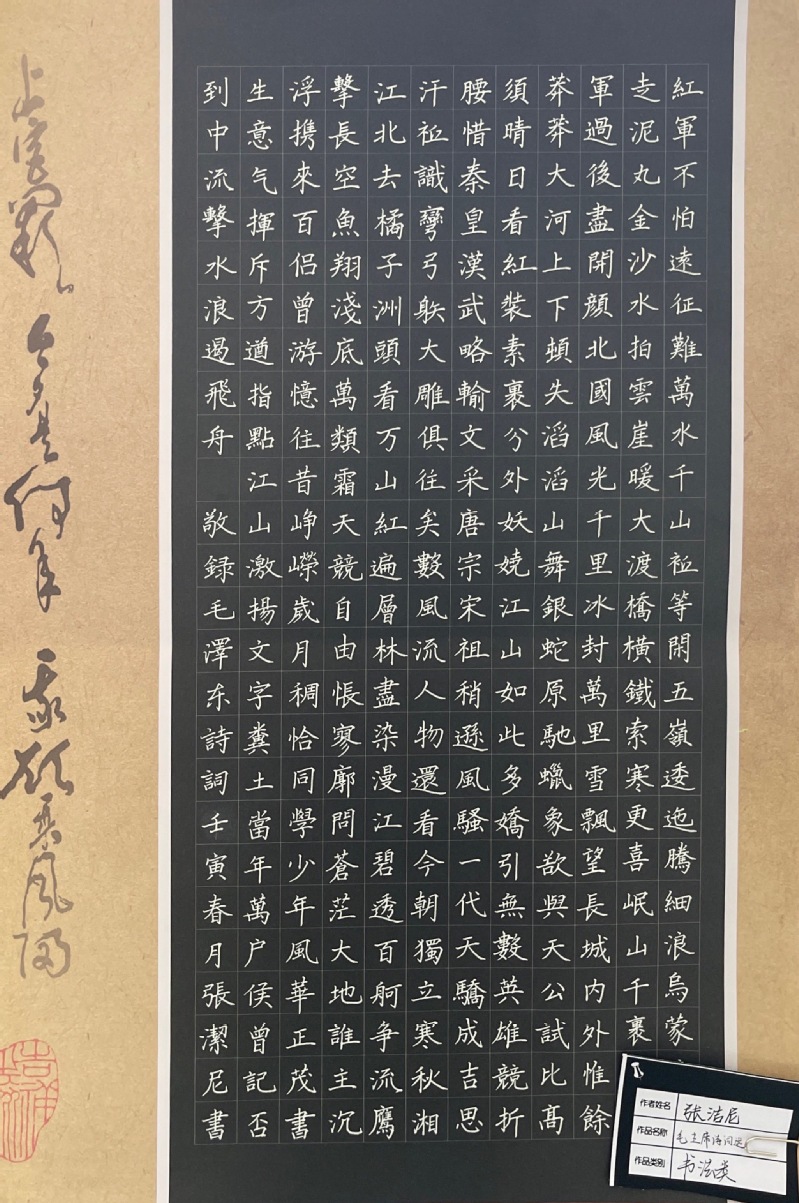 紅軍不怕遠征難萬水千山衹等閑五嶺逶迤騰細浪烏蒙
走泥丸金沙水拍雲崖暖大渡橋橫鐵索寒更喜岷山千裏
軍過後盡開顏北國風光千里冰封萬里雪飄望長城內外惟餘
莽莽大河上下頓失滔滔山舞銀蛇原馳蠟象欲與天公試比高
須晴日看紅裝素裹分外妖嬈江山如此多嬌引無數英雄競折
腰惜秦皇漢武略輸文采唐宗宋祖稍遜風騷一代天驕成吉思
汗衹識彎弓䠶大雕俱往矣數風流人物還看今朝獨立寒秋湘
江北去橘子洲頭看万山紅遍層林盡染漫江碧透百舸争流鷹
擊長空魚翔淺底萬類霜天競自由悵寥廓問蒼茫大地誰主沉
浮携來百侣曾游憶往昔崢嶸歲月稠恰同學少年風華正茂書
生意气揮斥方遒指點江山激揚文字糞土當年萬户侯曾記否
到中流擊水浪遏飛舟 敬録毛澤东詩詞壬寅春月張潔尼書
上宫闕 今夕是何年 我欲乘風歸
作者姓名 张洁尼
作品名称 毛主席诗词选
作品类别 书法类